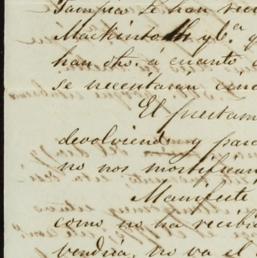 Sacrificio le han reci
Mackintosh y Ca. q
han dho. á cuanto
se necesitaran
El prestam
devolviendo y para
no nos mortifican
Manifeste
como no ha recibi
vendria, no va el